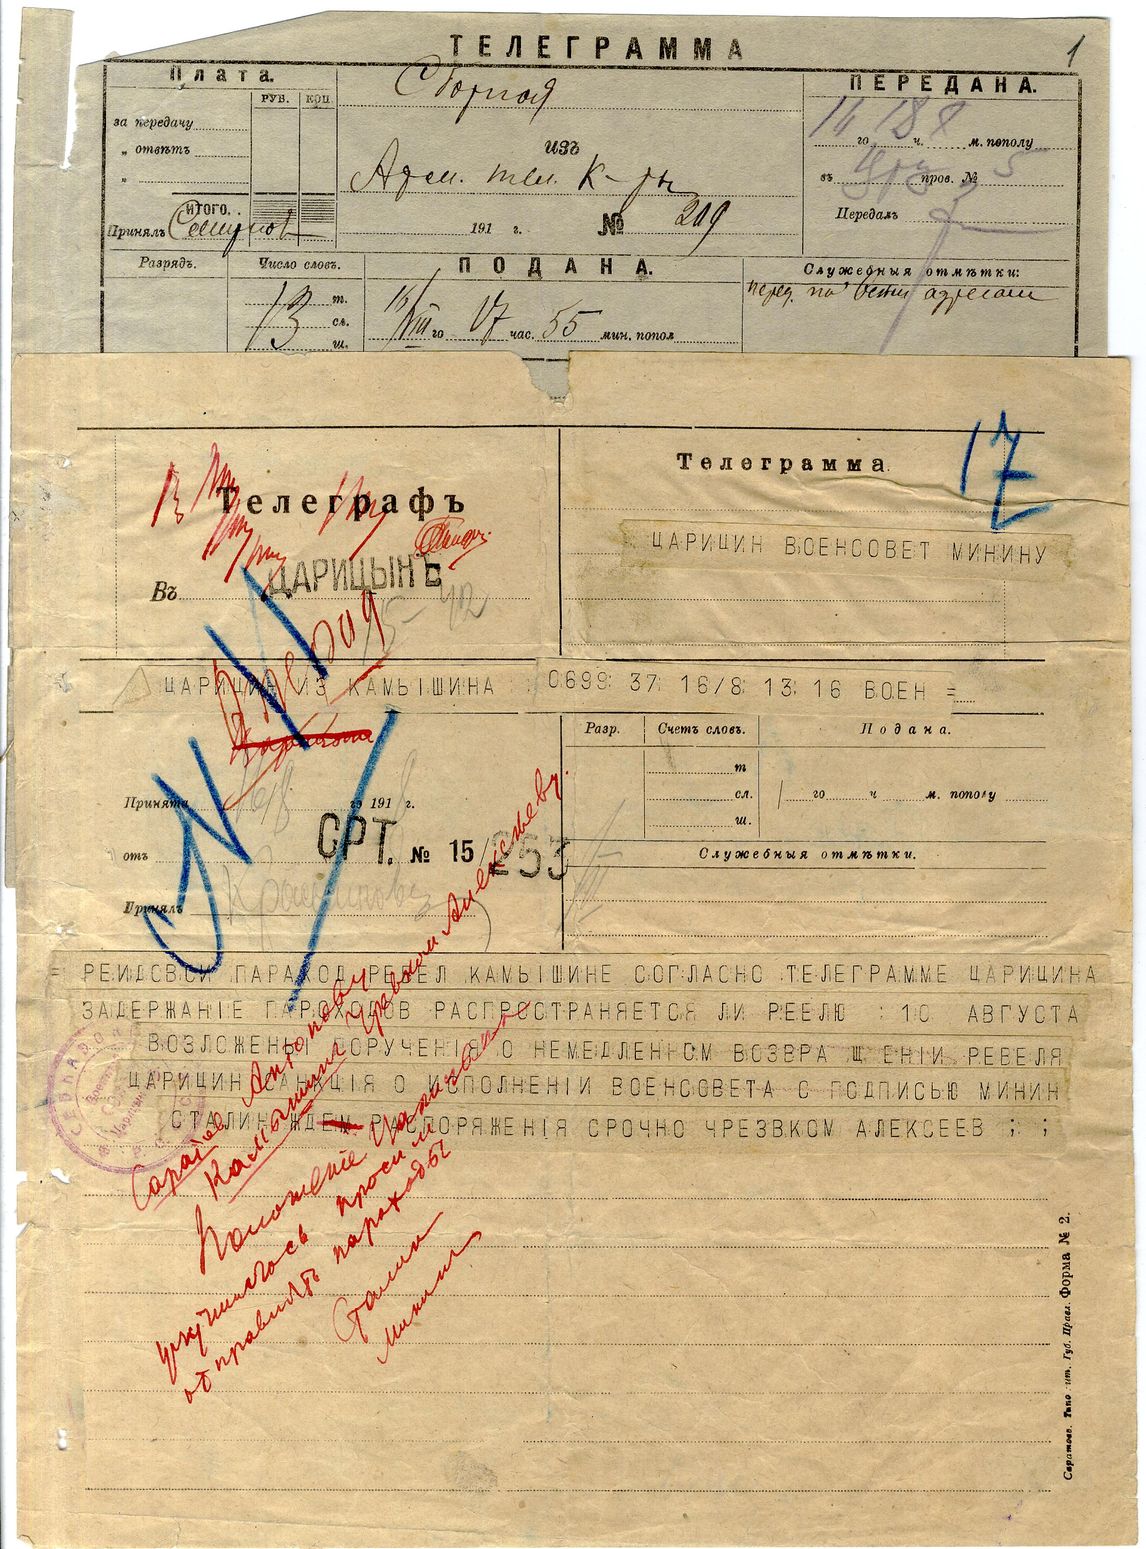 ТЕЛЕГРАММА
1
Плата.
РУБ. КОП.
за передачу
„ отвѣтъ
„
ИТОГО.
Принялъ
Сборная
изъ
Адм. тел. К-ры
191 г. № 209
ПЕРЕДАНА.
го ч. м. пополу
въ пров. №
Передалъ
Разрядъ.
Число словъ.
13
т.
сл.
ш.
ПОДАНА.
16/VIII го 17 час. 55 мин. попол
Служебныя отмѣтки:
перед. по всем адресам
Телеграфъ
Въ ЦАРИЦЫНѢ
Телеграмма
17
ЦАРИЦИН ВОЕНСОВЕТ МИНИНУ
ЦАРИЦИН ИЗ КАМЫШИНА 0699 37 16/8 13 16 ВОЕН =
Принята 16/8 го 1918 г.
СРТ. № 15/253
отъ
Принялъ
Разр.
Счетъ словъ.
т
сл.
ш.
Подана.
го ч м. пополу
Служебныя отмѣтки.
= РЕИДОВОИ ПАРАХОД РЕВЕЛ КАМЫШИНЕ СОГЛАСНО ТЕЛЕГРАММЕ ЦАРИЦИНА
ЗАДЕРЖАНІЕ ПАРОХОДОВ РАСПРОСТРАНЯЕТСЯ ЛИ РЕЕЛЮ : 10 АВГУСТА
ВОЗЛОЖЕНЫ ПОРУЧЕНІЯ О НЕМЕДЛЕННОМ ВОЗВРАЩЕНІИ РЕВЕЛЯ
ЦАРИЦИН САНКЦІЯ О ИСПОЛНЕНІИ ВОЕНСОВЕТА С ПОДПИСЬЮ МИНИН
СТАЛИН ЖДЕМ РАСПОРЯЖЕНІЯ СРОЧНО ЧРЕЗВКОМ АЛЕКСЕЕВ ; ;
Саратов Антонову
Камышин Чрезвком Алексѣеву.
Положеніе Царицына
улучшилось просим
отправлять пароходы
Сталин
Минин
Саратовъ. Типо-лит. Губ. Правл. Форма № 2.